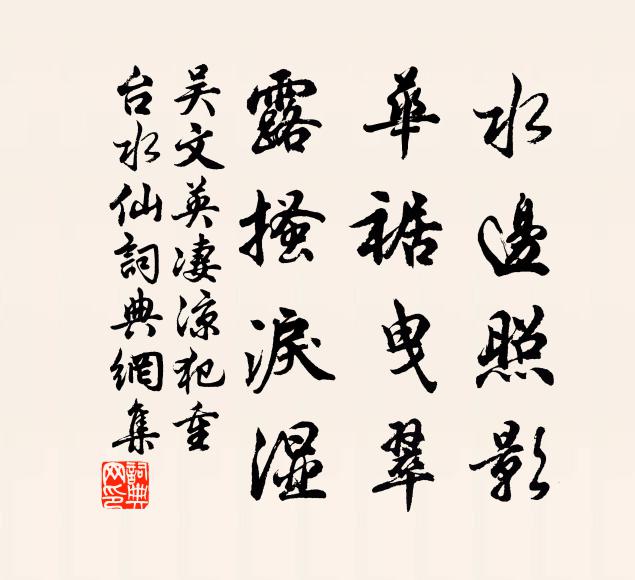 水邊照影
華裾曳翠
露搔淚湿
吴文英凄凉犯重
台水仙詞典網集
詞典网印